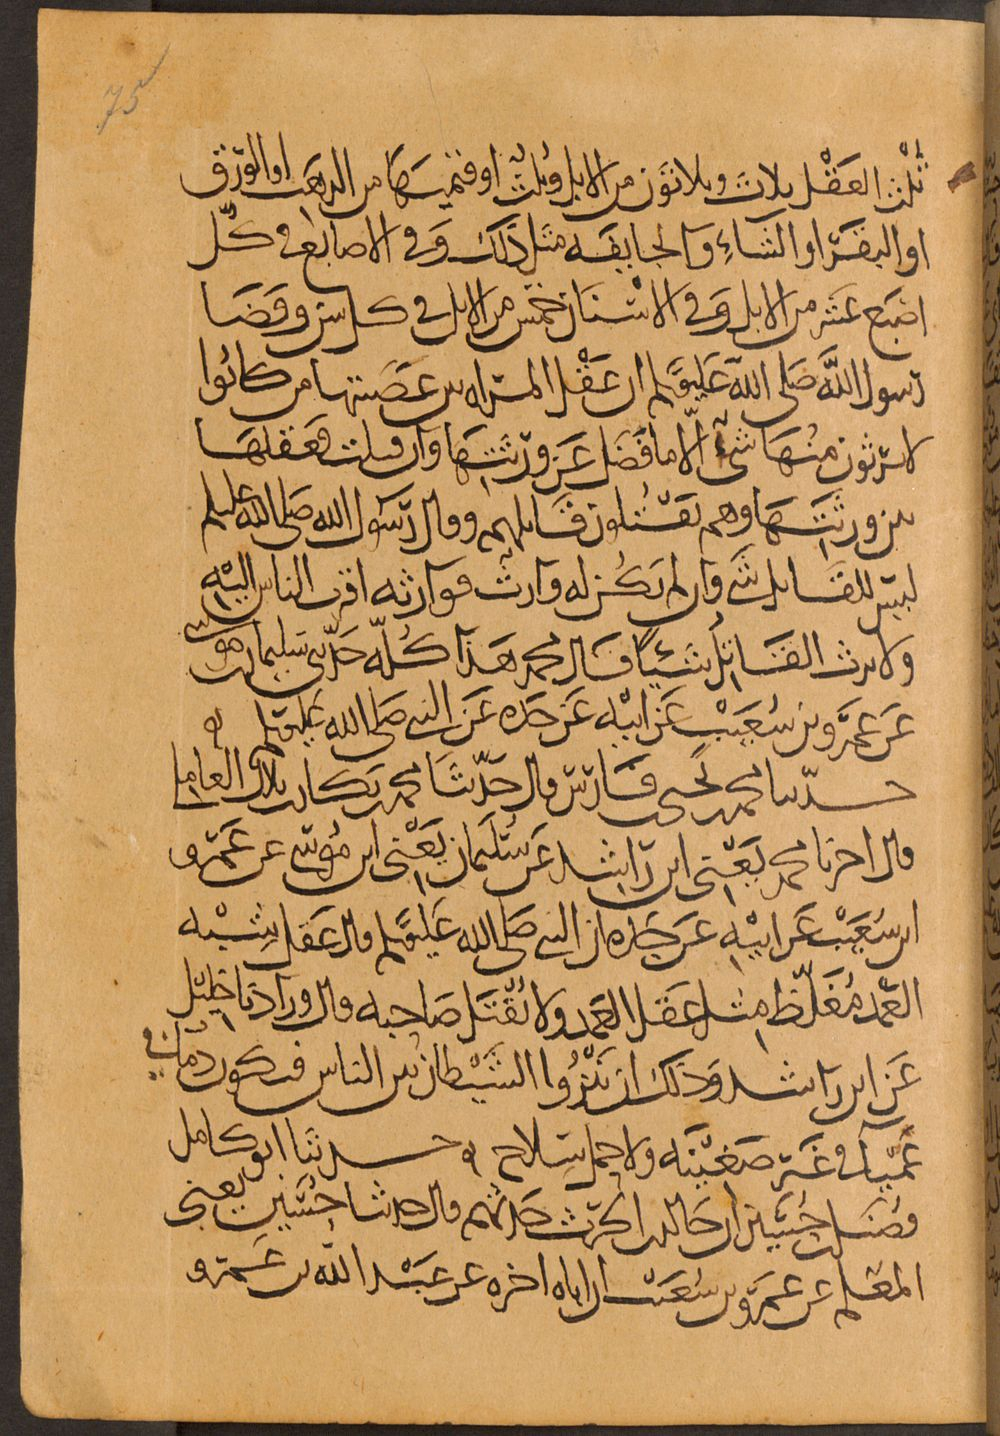 75
ثلث العقل ثلاث وثلاثون من الابل وثلث او قيمتها من الذهب او الورق
او البقر او الشاء والجايفه مثل ذلك وفي الاصابع في كل
اصبع عشر من الابل وفي الاسنان خمس من الابل في كل سن وقضا
رسول الله صلى الله عليه وسلم ان عقل المراه بين عصبتها من كانوا
لا يرثون منها شيء الا ما فضل عن ورثتها وان قتلت فعقلها
بين ورثتها وهم يقتلون قاتلهم وقال رسول الله صلى الله عليه وسلم
ليس للقاتل شي وان لم يكن له وارث فوارثه اقرب الناس اليه
ولا يرث القاتل شيئا قال محمد هذا كله حدثني سليمان بن موسى
عن عمرو بن شعيب عن ابيه عن جده عن النبي صلى الله عليه وسلم
حدثنا محمد بن يحيى بن فارس قال حدثنا محمد بن بكار بن بلال العاملي
قال اخبرنا محمد يعني ابن راشد عن سليمان يعني ابن موسى عن عمرو
ابن شعيب عن ابيه عن جده ان النبي صلى الله عليه وسلم قال عقل شبه
العمد مغلظ مثل عقل العمد ولا يقتل صاحبه قال وزادنا خليل
عن ابن راشد وذلك ان ينزوا الشيطان بين الناس فيكون دما في
عميا في غير ضغينه ولا حمل سلاح ه حدثنا ابو كامل
فضيل بن حسين ان خالد بن الحرث حدثهم قال حدثنا حسين يعني
المعلم عن عمرو بن شعيب ان اباه اخبره عن عبد الله بن عمرو